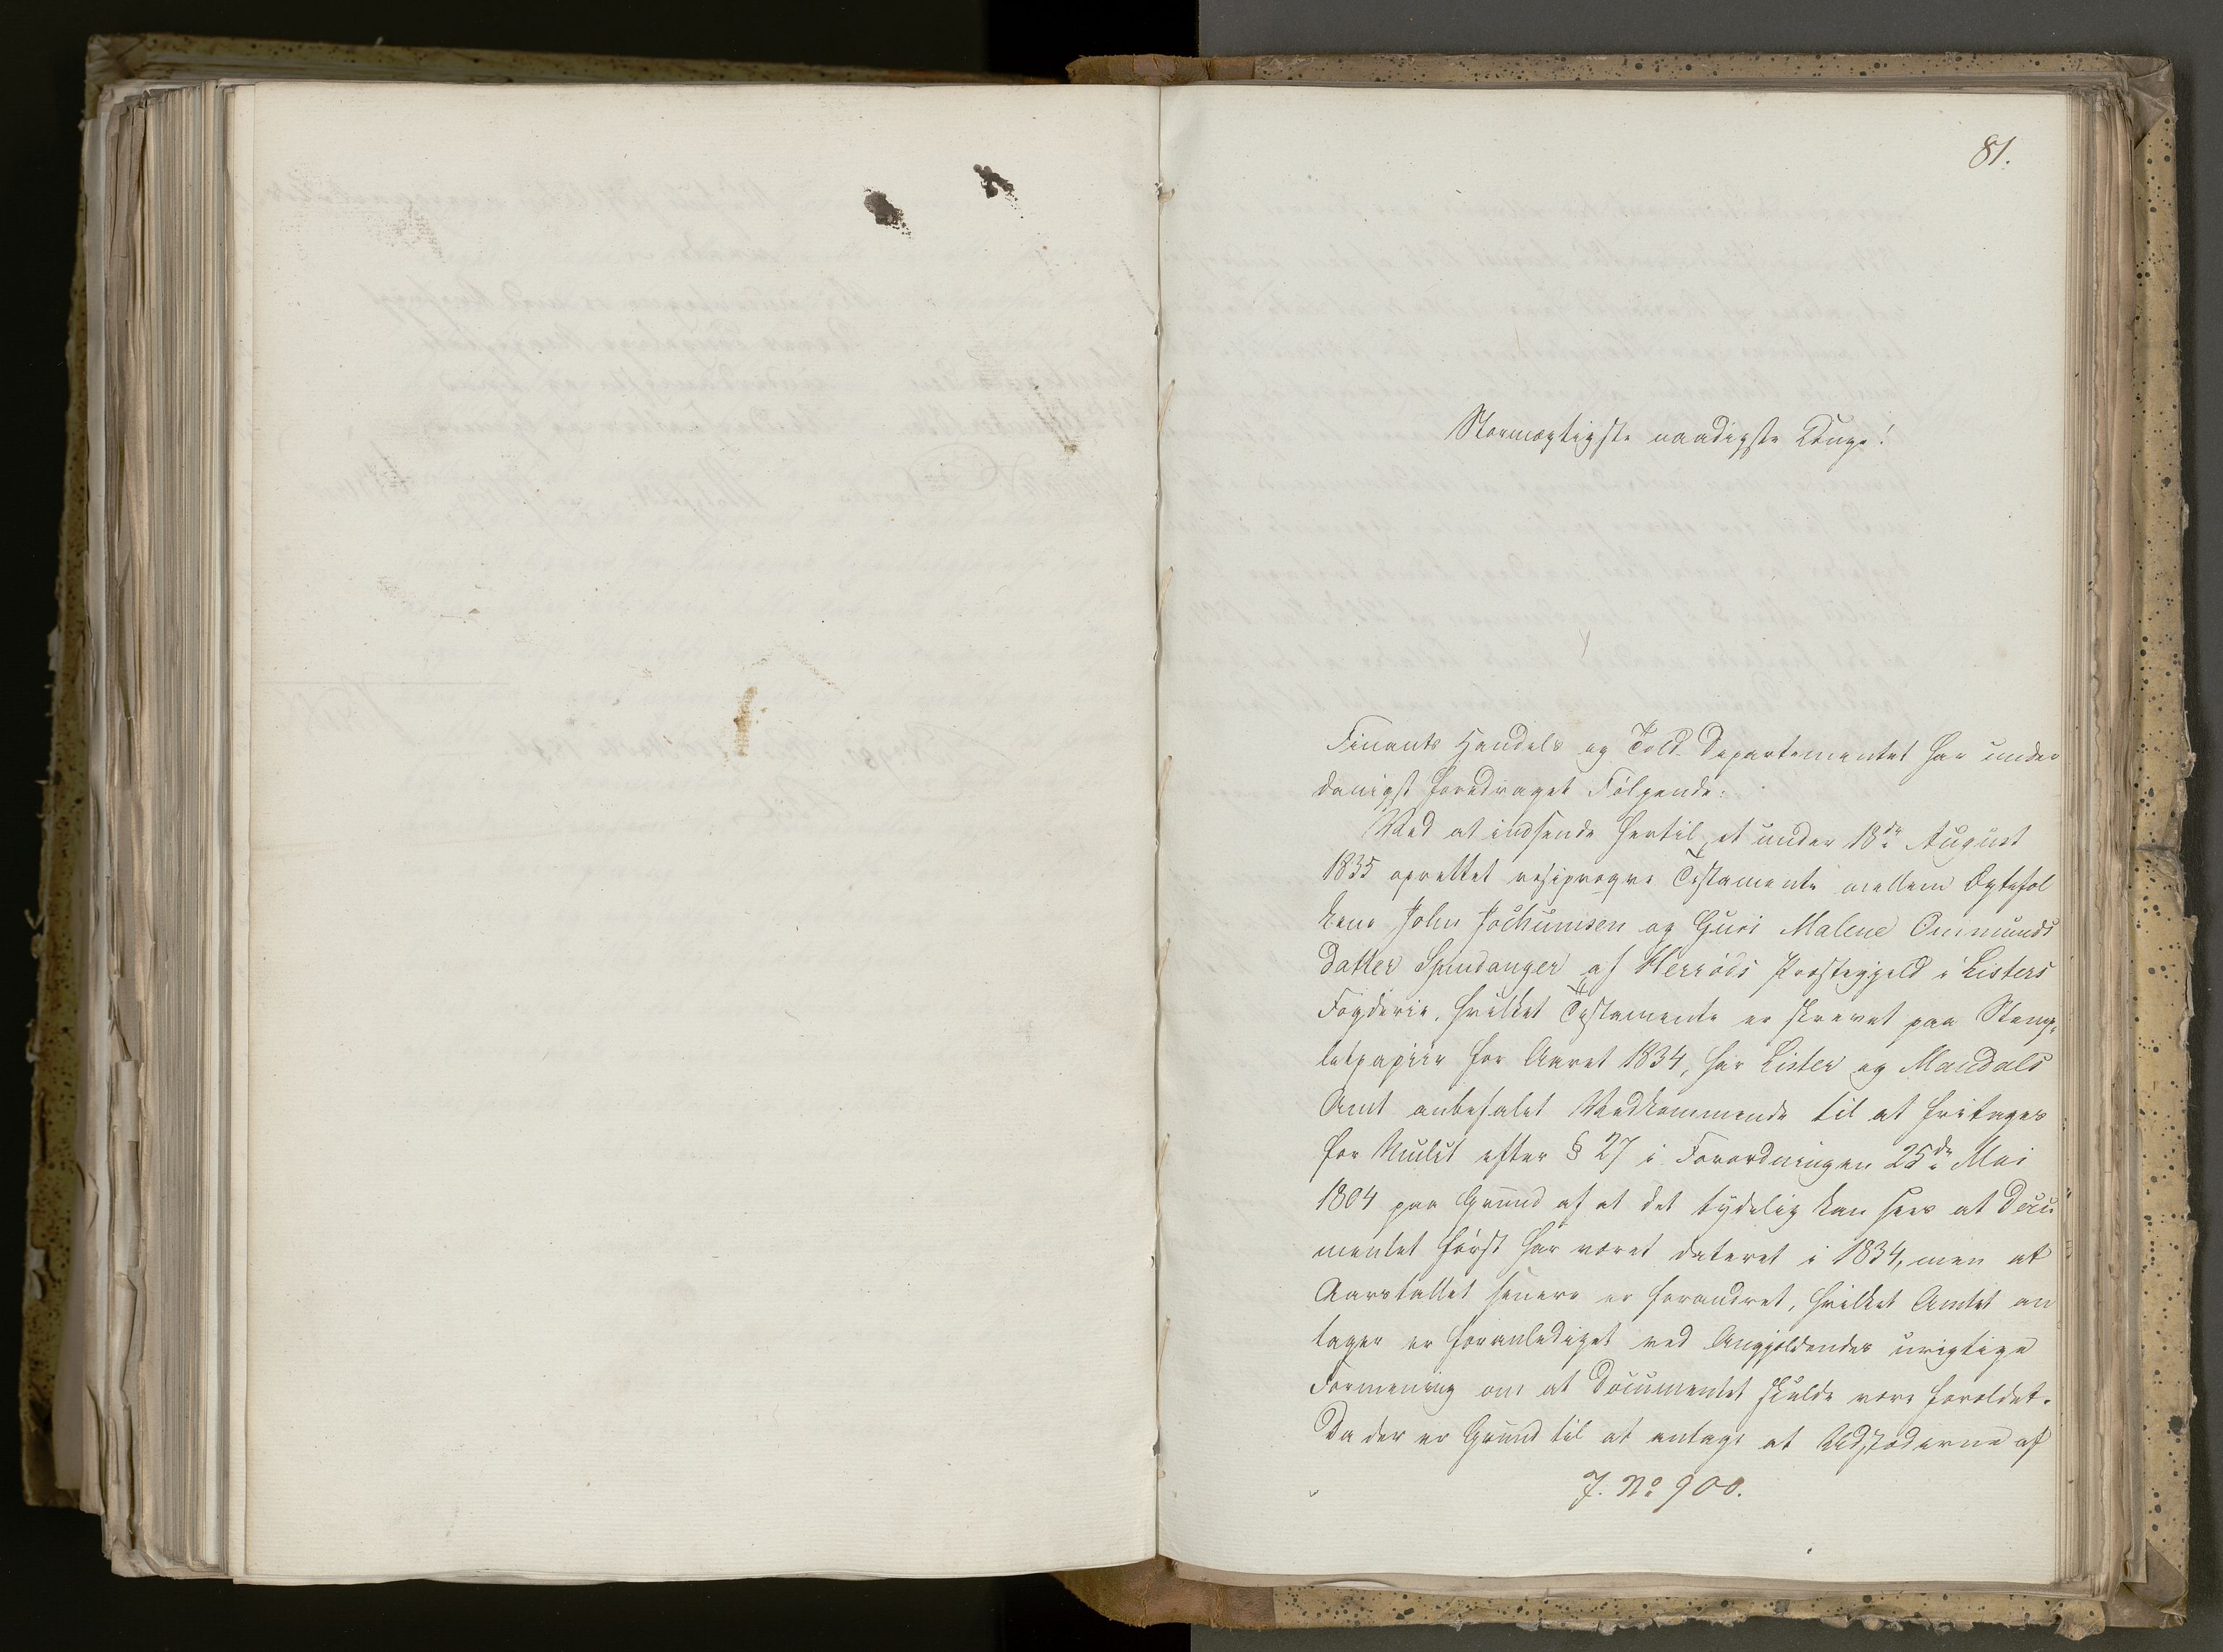 81.
Stormægtigste naadigste Konge!
Finants Handels og Told Departementet har under
danigst foredraget Følgende:
Ved at indsende hertil et under 18de August
1835 oprettet resiproqve Testamente mellem Ægtefol
kene John Jochumsen og Guri Malene Ommunds
datter Spindanger af Herrøds Præstegjeld i Listers
Fogderie, hvilket Testamente er skrevet paa Stemp,
letpapiir for Aaret 1834, har Lister og Mandals
Amt anbefalet Vedkommende til at fritages
for Mulct efter § 27 i Forordningen 25de Mai
1804 paa Grund af at det tydelig kan sees at Docu
mentet først har været dateret i 1834, men at
Aarstallet senere er forandret, hvilket Amtet an
tager er foranlediget ved Angjeldendes urigtige
Formening om at Documentet skulde være forældet.
Da der er Grund til at antage at Udstæderne af
J. No 900.